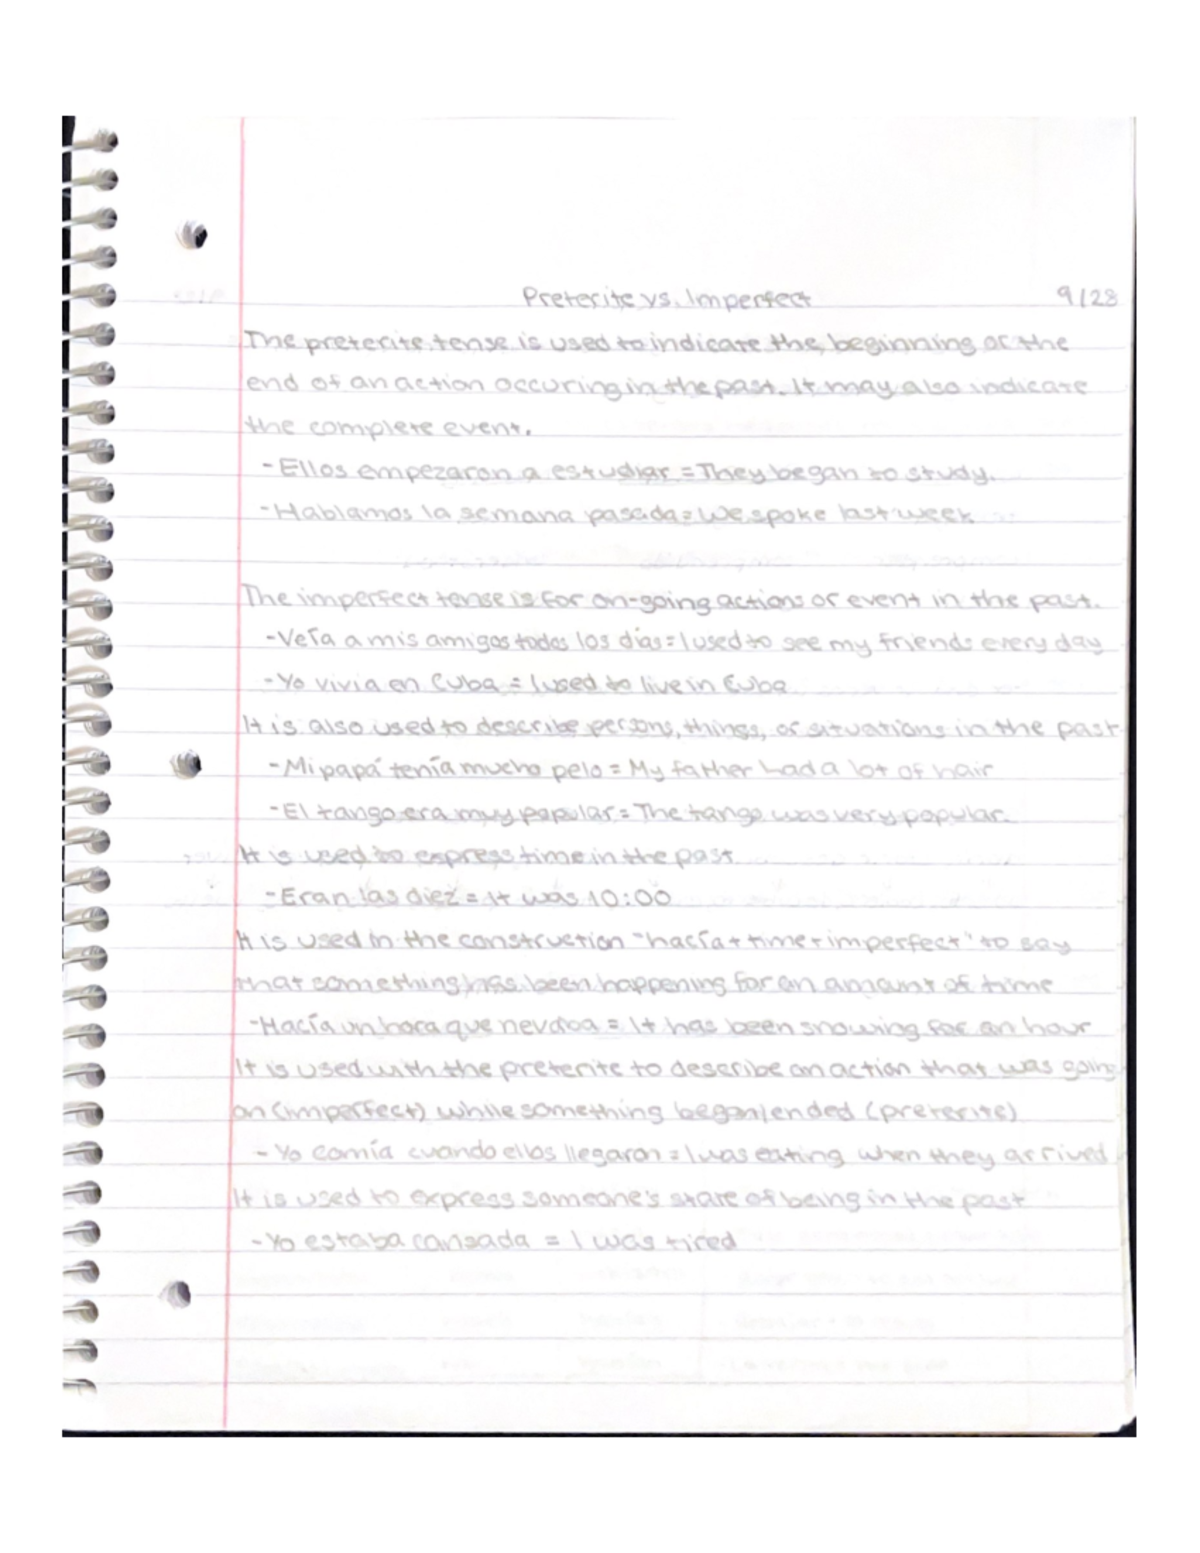 Preterite vs. Imperfect 9/28
The preterite tense is used to indicate the beginning or the
end of an action occuring in the past. It may also indicate
the complete event.
- Ellos empezaron a estudiar = They began to study.
- Hablamos la semana pasada = We spoke last week
The imperfect tense is for on-going actions or event in the past.
- Veía a mis amigos todos los días = I used to see my friends every day
- Yo vivia en Cuba = I used to live in Cuba
It is also used to describe persons, things, or situations in the past
- Mi papá tenía mucho pelo = My father had a lot of hair
- El tango era muy popular = The tango was very popular.
It is used to express time in the past
- Eran las diez = It was 10:00
It is used in the construction "hacía + time + imperfect" to say
that something has been happening for an amount of time
- Hacía un hora que nevaba = It has been snowing for an hour
It is used with the preterite to describe an action that was going
on (imperfect) while something began/ended (preterite)
- Yo comía cuando ellos llegaron = I was eating when they arrived
It is used to express someone's state of being in the past
- Yo estaba cansada = I was tired